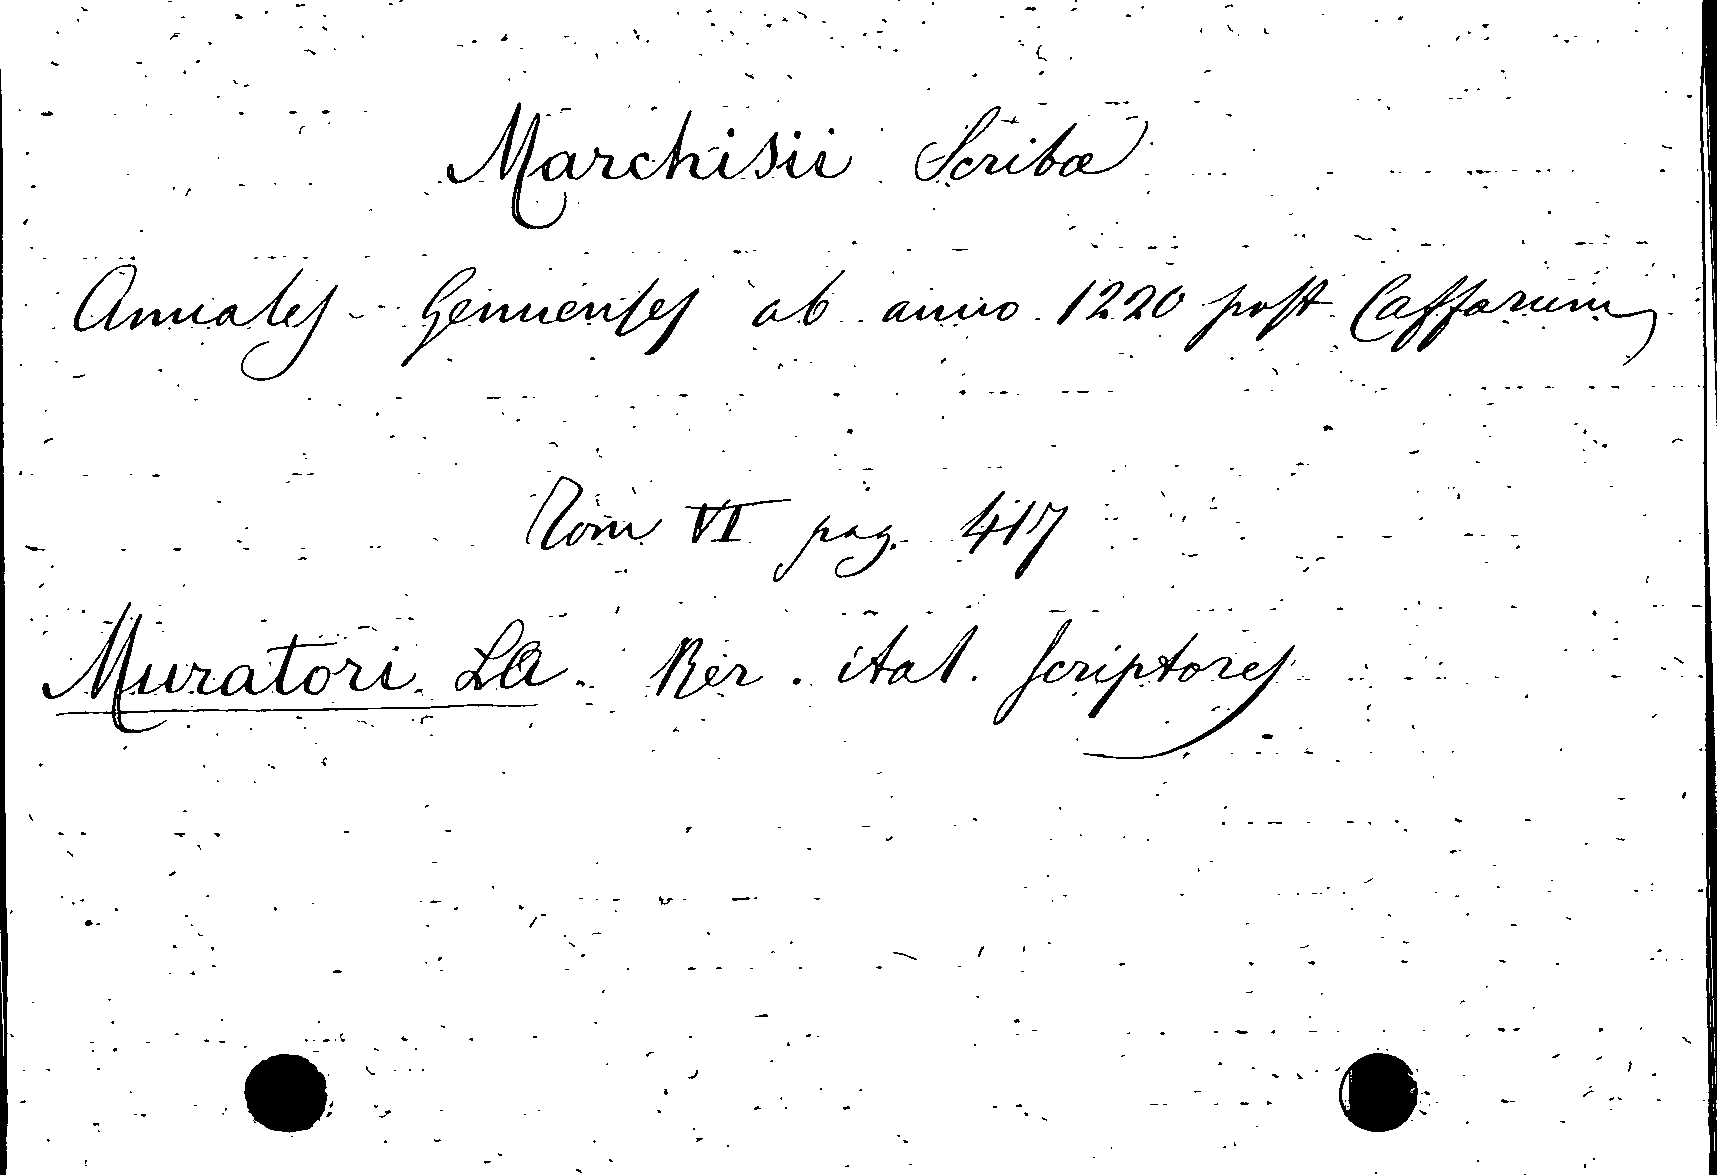 Marchisii Scribæ
Annales Genuenses ab anno 1220 post Caffarum
Tom VI pag. 417
Muratori LA. Rer. ital. scriptores